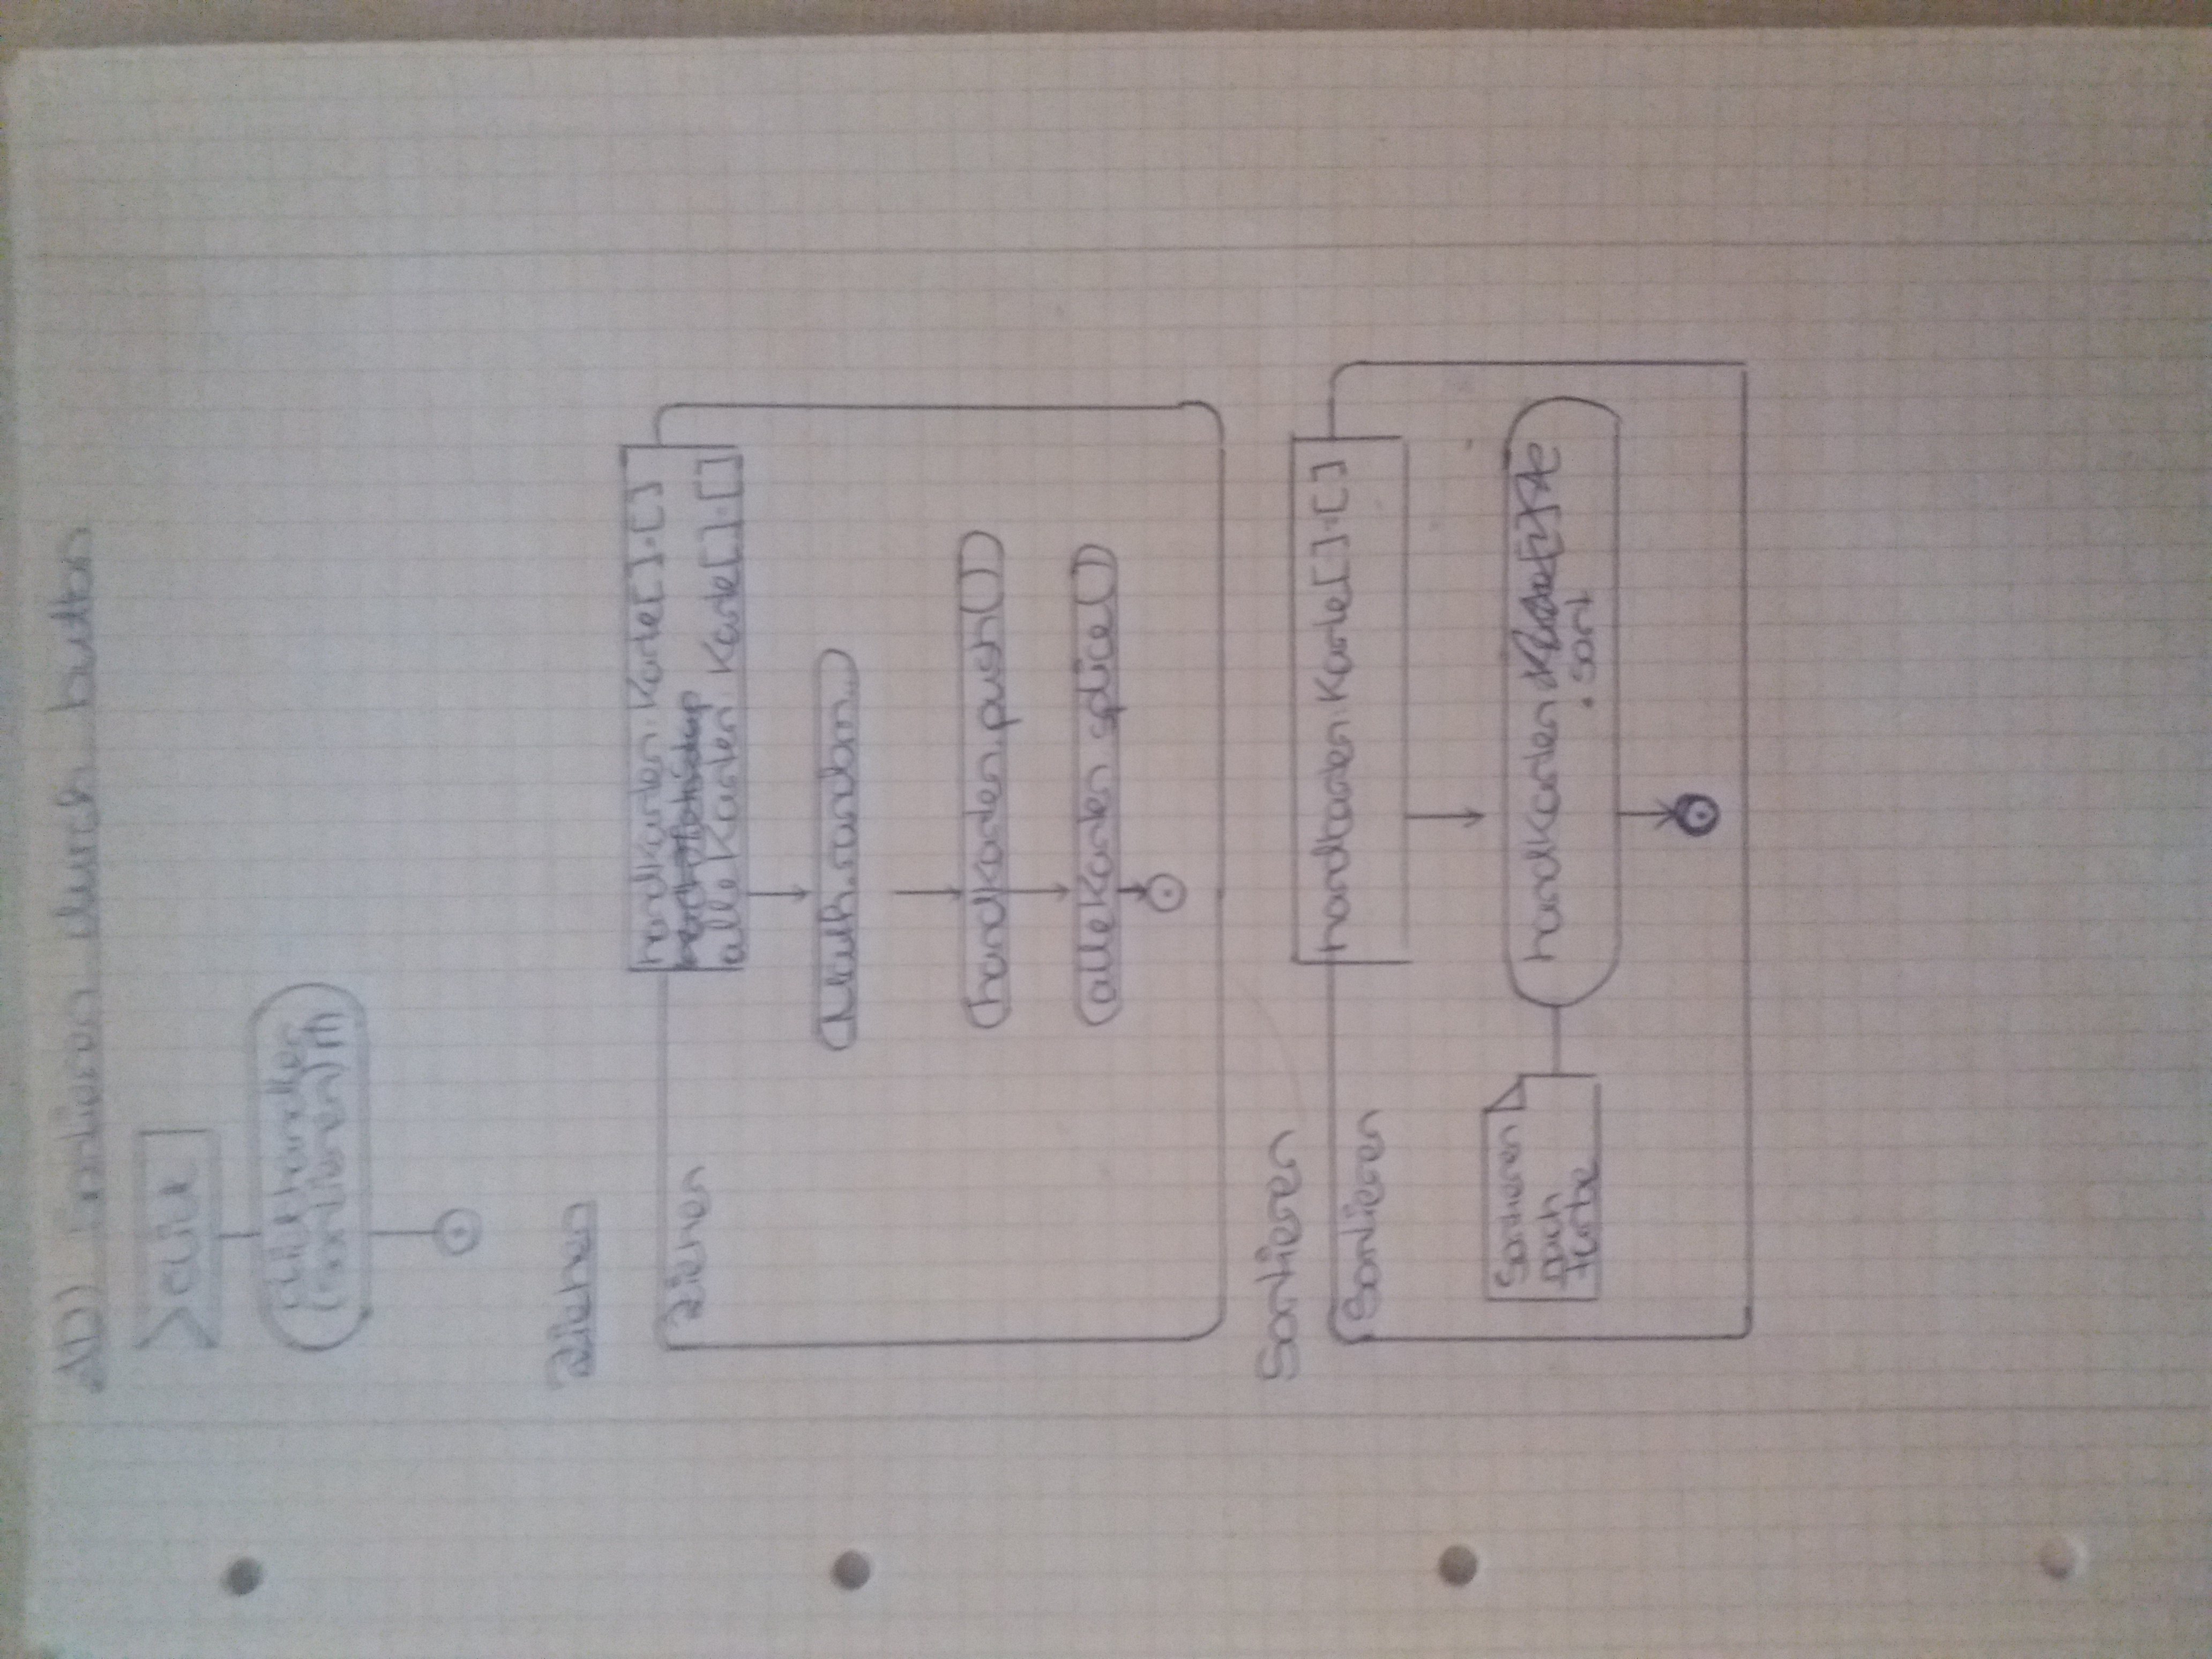 AD) Sortieren durch button
click
clickhandler
(sortieren)
Ziehen
handkarten: Karte[] = []
Ziehen
alleKarten: Karte[] = []
Math.random..
handkarten.push()
alleKarten.splice()
Sortieren
handkarten: Karte[] = []
Sortieren
Sortieren
nach
farbe
handKarten
.sort